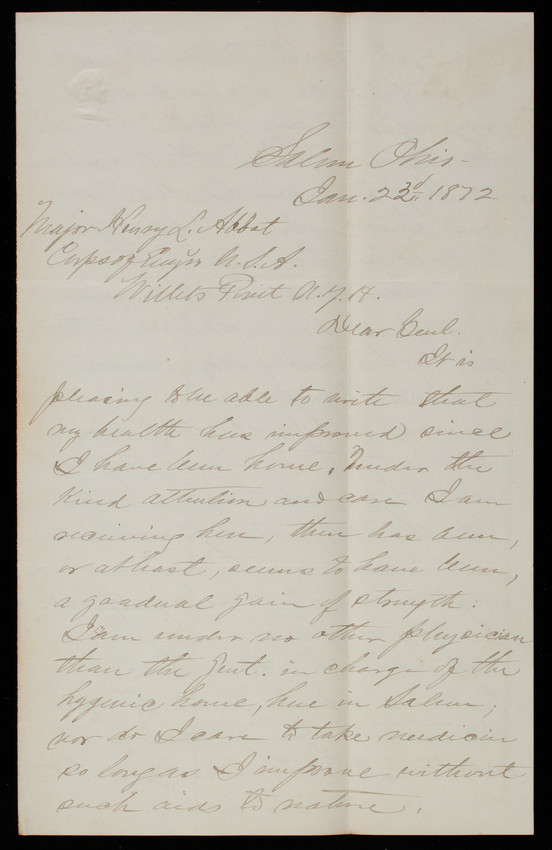 Salem Ohio -
Jan. 23d 1872
Major Henry L. Abbot
Corps of Engrs U.S.A.
Willets Point N.Y.H.
Dear Genl.
It is
pleasing to be able to write that
my health has improved since
I have been home. Under the
kind attention and care I am
receiving here, there has been,
or at least, seems to have been,
a gradual gain of strength.
I am under no other physician
than the Gent. in charge of the
hygenic home, here in Salem;
nor do I care to take medicin
so long as I improve without
such aids to nature.